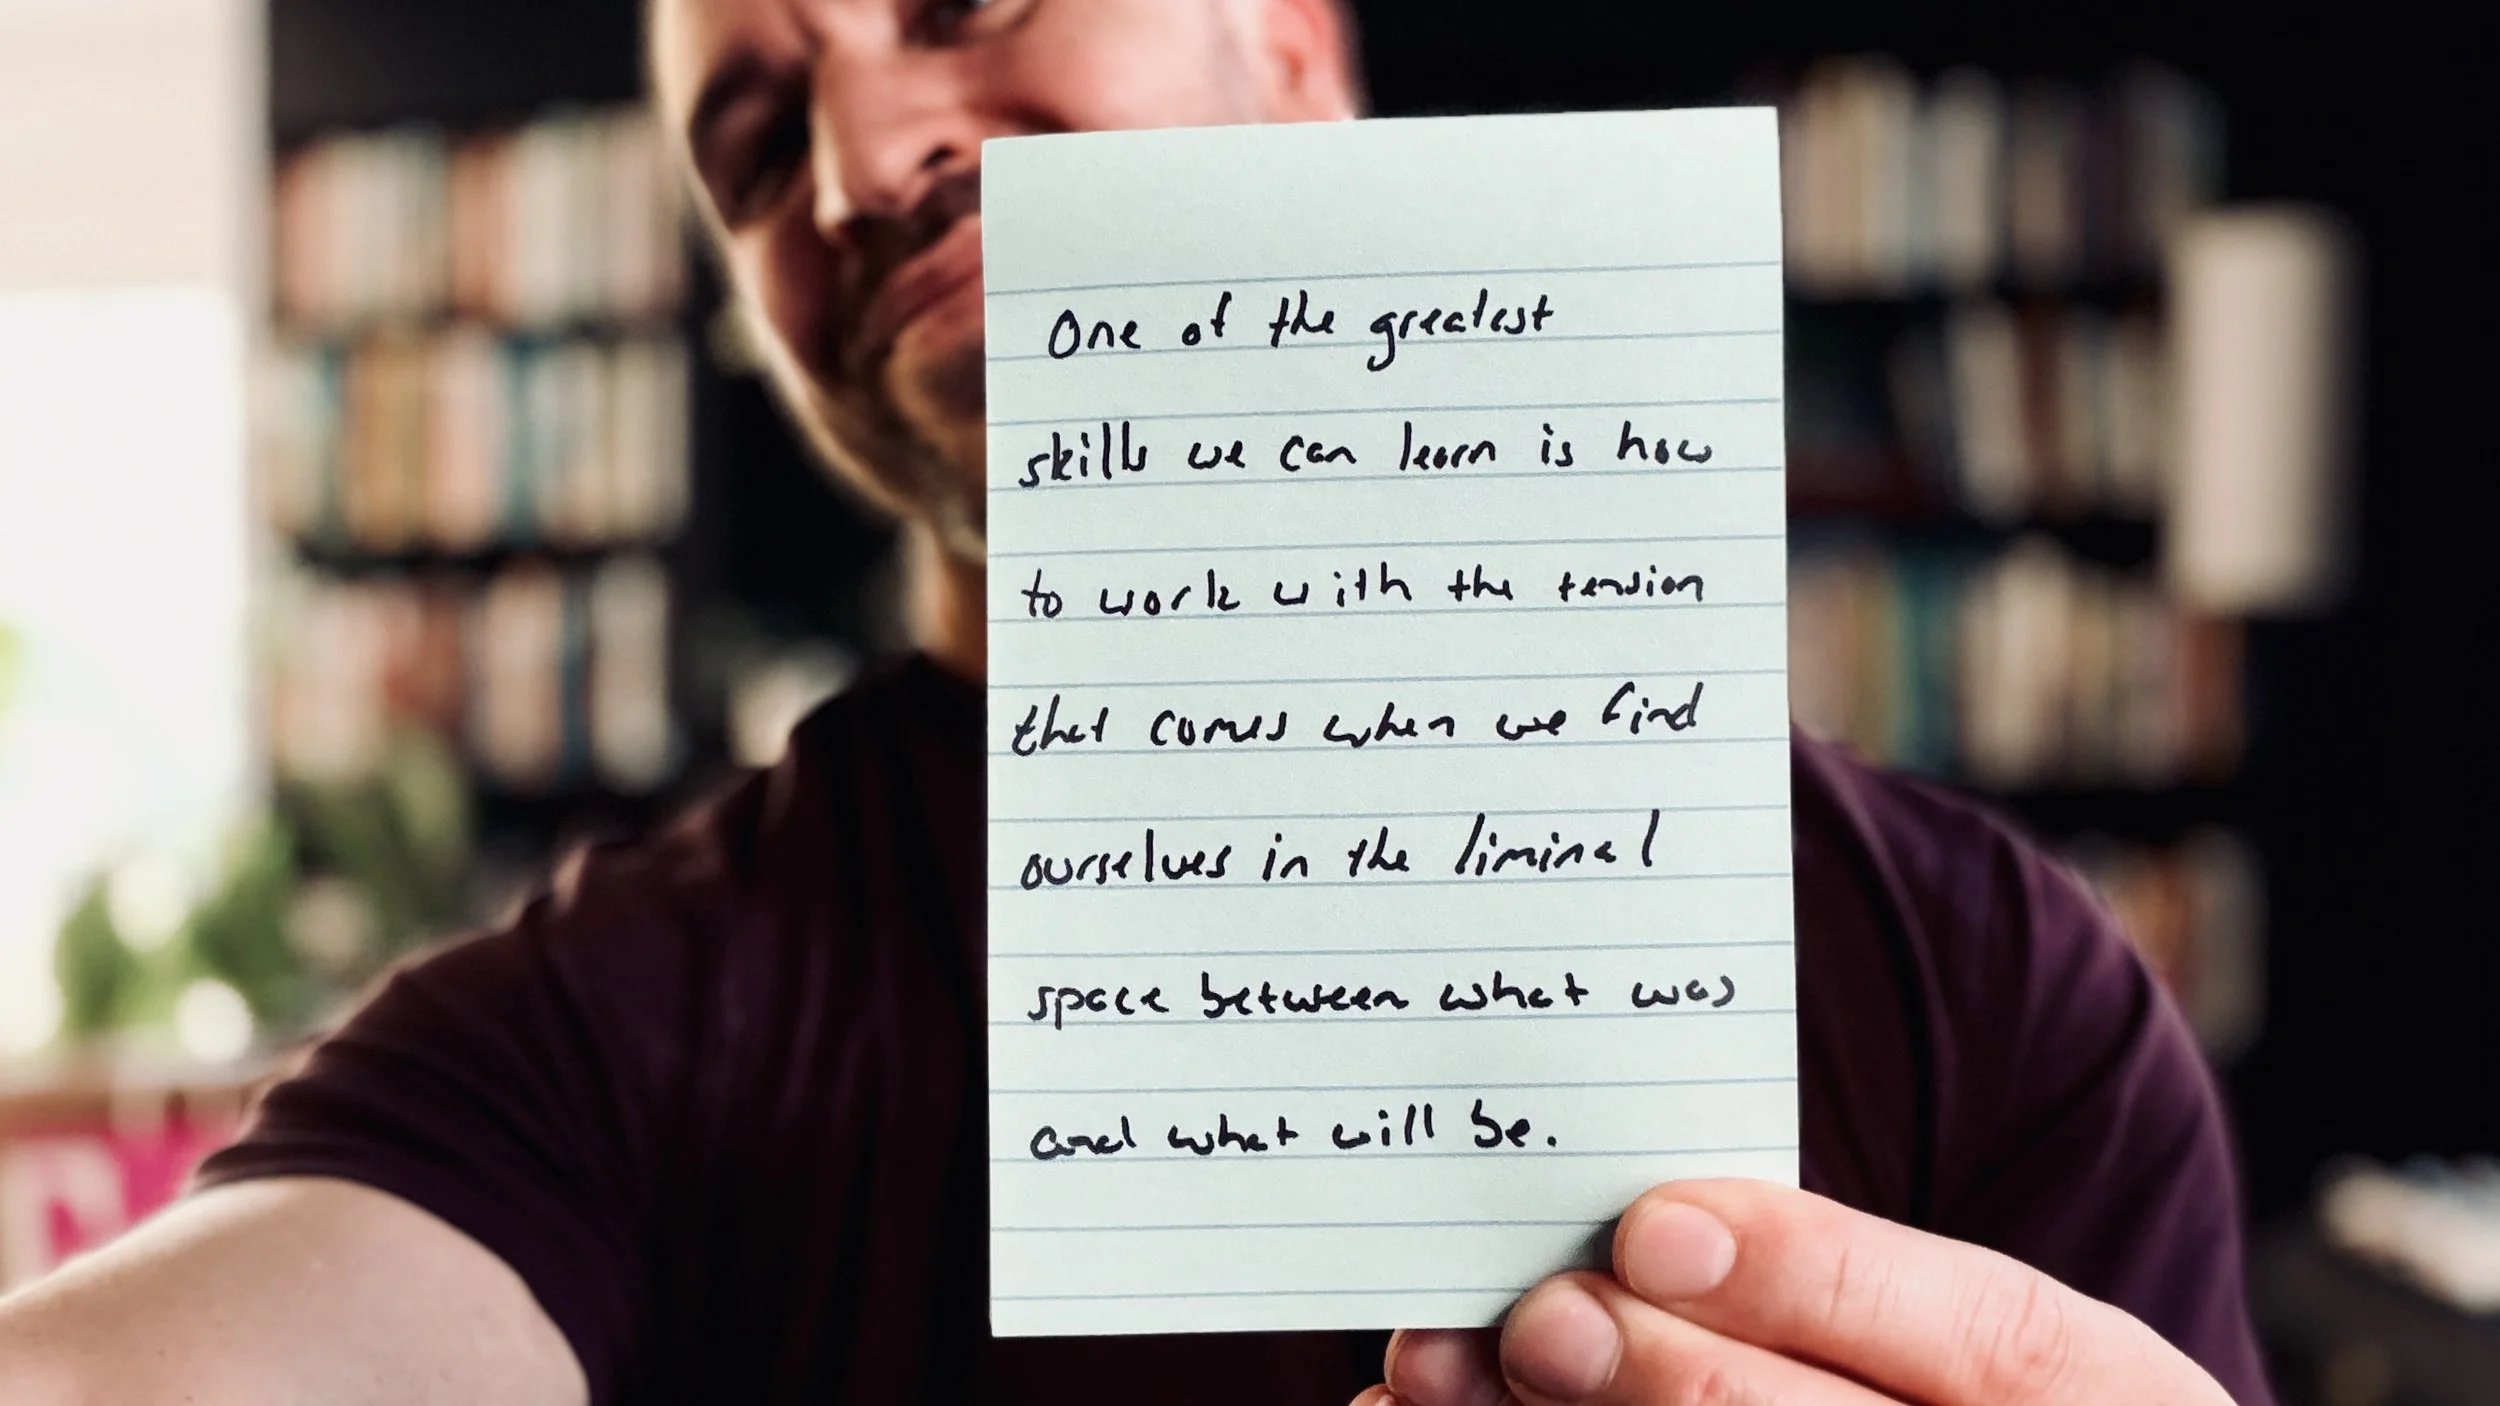 One of the greatest
skills we can learn is how
to work with the tension
that comes when we find
ourselves in the liminal
space between what was
and what will be.